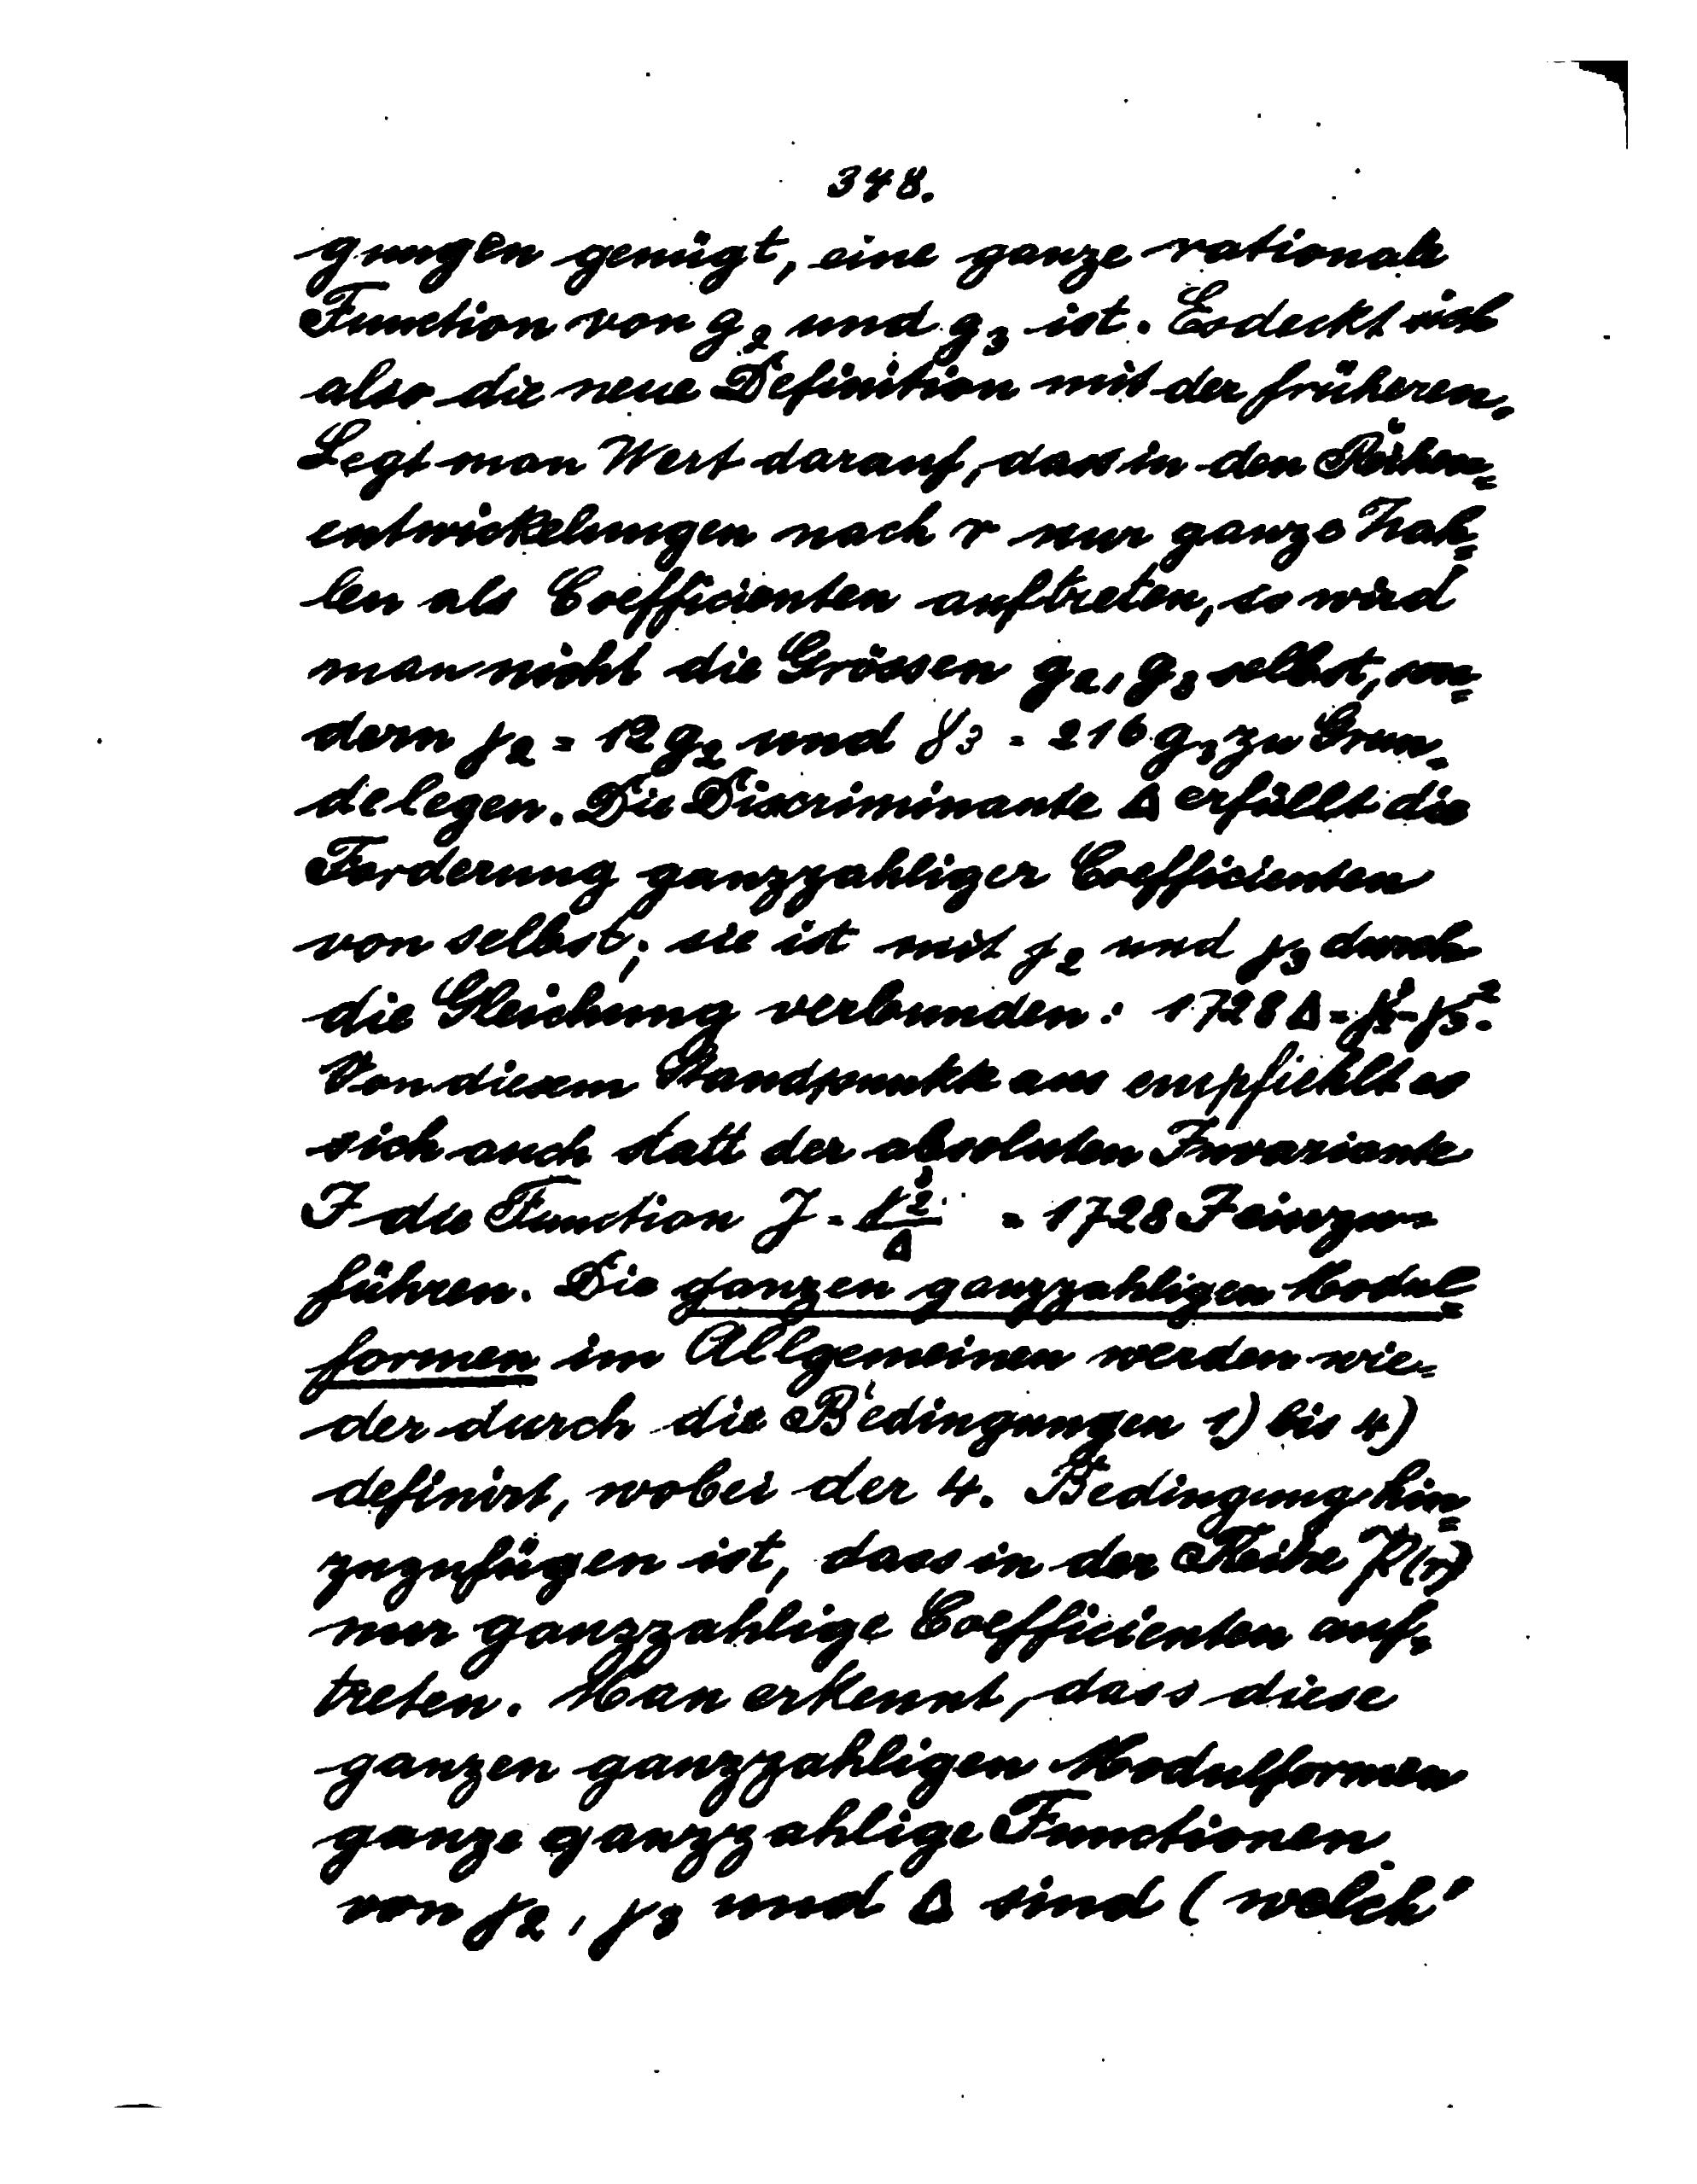 348.
gungen genügt, eine ganze rationale
Function von g₂ und g₃ ist. Es deckt sich
also die neue Definition mit der früheren.
Legt man Wert darauf, dass in den Reihen=
entwickelungen nach r nur ganze Zah=
len als Coefficienten auftreten, so wird
man nicht die Grössen g₂, g₃ selbst, son=
dern γ₂ = 12 g₂ und γ₃ = 216 g₃ zu Grun=
de legen. Die Discriminante Δ erfüllt die
Forderung ganzzahliger Coefficienten
von selbst; sie ist mit γ₂ und γ₃ durch
die Gleichung verbunden: 1728 Δ = γ₂³ - γ₃².
Von diesem Standpunkte aus empfiehlt es
sich auch statt der absoluten Invariante
J die Function j = γ₂³/Δ = 1728 J einzu=
führen. Die ganzen ganzzahligen Modul=
formen im Allgemeinen werden wie=
der durch die Bedingungen 1) bis 4)
definirt, wobei der 4. Bedingung hin=
zuzufügen ist, dass in der Reihe P(r)
nur ganzzahlige Coefficienten auf=
treten. Man erkennt, dass diese
ganzen ganzzahligen Modulformen
ganze ganzzahlige Functionen
von γ₂, γ₃ und Δ sind (welch'